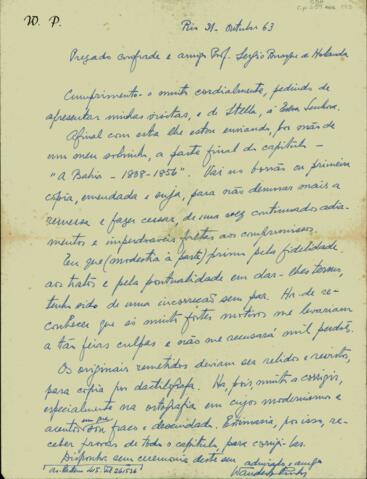 W. P.
Rio 31 - Outubro 63
Prezado confrade e amigo Prof. Sergio Buarque de Holanda
Cumprimento-o muito cordialmente, pedindo de
apresentar minhas visitas, e de Stella, á Exma Senhora.
Afinal com esta lhe estou enviando, por mãos de
um meu sobrinho, a parte final do capitulo -
"A Bahia - 1808-1856". Vai no borrão ou primeira
cópia, emendada e suja, para não demorar mais a
remessa e fazer cessar, de uma vez, continuados adia-
mentos e imperdoaveis faltas aos compromissos.
Eu que (modestia à parte) primo pela fidelidade
aos tratos e pela pontualidade em dar-lhes termo,
tenho sido de uma incorreção sem par. Ha de re-
conhecer que só muito fortes motivos me levariam
a tão feias culpas e não me recusará mil perdões.
Os originais remetidos deviam ser relidos e revistos,
para cópia por dactilógrafa. Ha, pois, muito a corrigir,
especialmente na ortografia em cujos modernismos e
acentos em que sou fraco e descuidado. Estimaria, por isso, re-
ceber provas de todo o capitulo, para corrigi-las.
Disponha sem ceremonia deste seu admirador e amigo
Wanderley Pinho